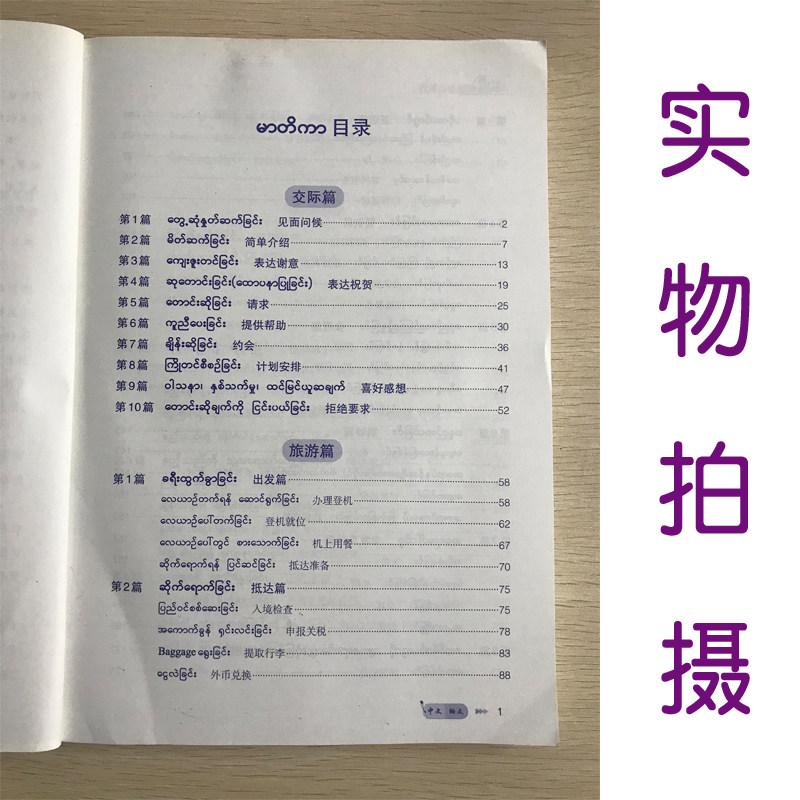 မာတိကာ 目录
交际篇
第1篇 တွေ့ဆုံနှုတ်ဆက်ခြင်း 见面问候 2
第2篇 မိတ်ဆက်ခြင်း 简单介绍 7
第3篇 ကျေးဇူးတင်ခြင်း 表达谢意 13
第4篇 ဆုတောင်းခြင်း(ထောပနာပြုခြင်း) 表达祝贺 19
第5篇 တောင်းဆိုခြင်း 请求 25
第6篇 ကူညီပေးခြင်း 提供帮助 30
第7篇 ချိန်းဆိုခြင်း 约会 36
第8篇 ကြိုတင်စီစဉ်ခြင်း 计划安排 41
第9篇 ဝါသနာ၊ နှစ်သက်မှု၊ ထင်မြင်ယူဆချက် 喜好感想 47
第10篇 တောင်းဆိုချက်ကို ငြင်းပယ်ခြင်း 拒绝要求 52
旅游篇
第1篇 ခရီးထွက်ခွာခြင်း 出发篇 58
လေယာဉ်တက်ရန် ဆောင်ရွက်ခြင်း 办理登机 58
လေယာဉ်ပေါ်တက်ခြင်း 登机就位 62
လေယာဉ်ပေါ်တွင် စားသောက်ခြင်း 机上用餐 67
ဆိုက်ရောက်ရန် ပြင်ဆင်ခြင်း 抵达准备 70
第2篇 ဆိုက်ရောက်ခြင်း 抵达篇 75
ပြည်ဝင်စစ်ဆေးခြင်း 入境检查 75
အကောက်ခွန် ရှင်းလင်းခြင်း 申报关税 78
Baggage ရွေးခြင်း 提取行李 83
ငွေလဲခြင်း 外币兑换 88
中文 缅文 1
实物拍摄